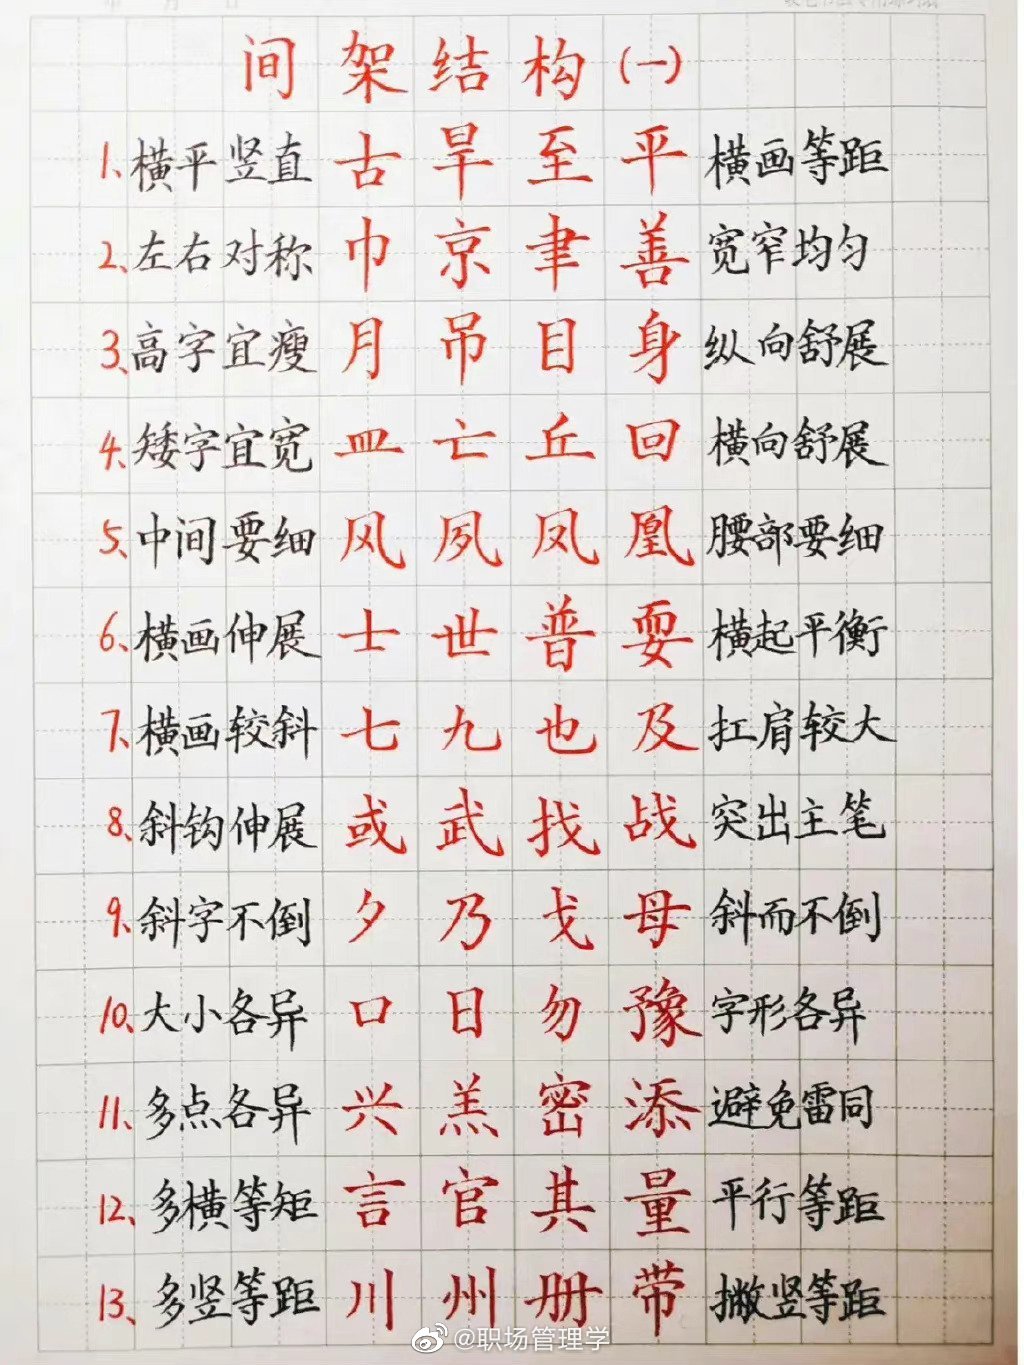 间架结构(一)
1、横平竖直 古旱至平 横画等距
2、左右对称 巾京聿善 宽窄均匀
3、高字宜瘦 月吊目身 纵向舒展
4、矮字宜宽 皿亡丘回 横向舒展
5、中间要细 风夙凤凰 腰部要细
6、横画伸展 士世普耍 横起平衡
7、横画较斜 七九也及 扛肩较大
8、斜钩伸展 或武找战 突出主笔
9、斜字不倒 夕乃戈母 斜而不倒
10、大小各异 口日勿豫 字形各异
11、多点各异 兴羔密添 避免雷同
12、多横等矩 言官其量 平行等距
13、多竖等距 川州册带 撇竖等距
@职场管理学